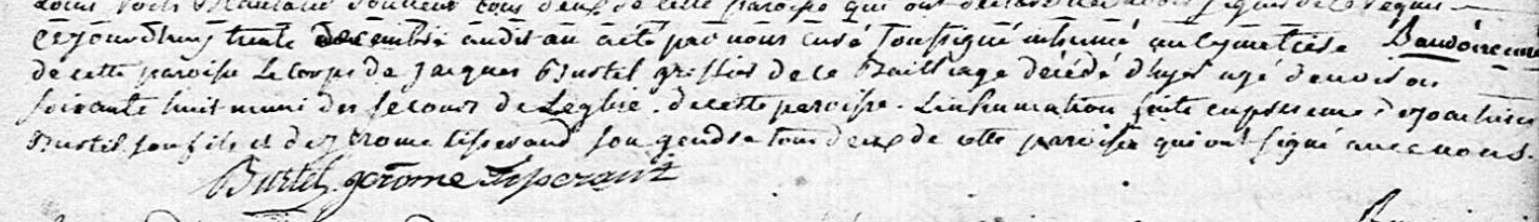 tous deux de cette paroisse qui ont
Cejourdhuy trente decembre audit an a eté par nous curé soussigné inhumé au Cymetiere
de cette paroisse Le Corps de Jacques Burtel greffier de ce Bailliage décédé d'hyer agé d'environ
soixante huit muni des secours de Leglise. de cette paroisse. Linhumation faite en presence de joachim
Burtel son fils et de jerome tisserand son gendre tous deux de cette paroisse qui ont signé avec nous.
Burtel jerôme Tisserant